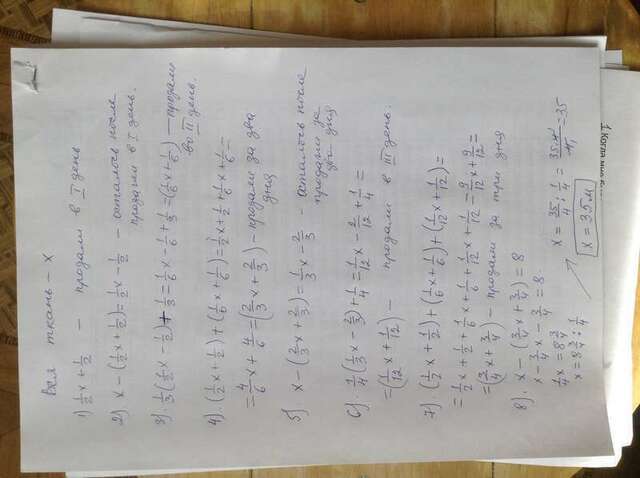 Вся ткань – x
1) 1/2x + 1/2 – продали в I день
2) x – (1/2x + 1/2) = 1/2x – 1/2 – осталось после
продажи в I день.
3). 1/3(1/2x – 1/2) + 1/3 = 1/6x – 1/6 + 1/3 = (1/6x + 1/6) – продали
во II день.
4). (1/2x + 1/2) + (1/6x + 1/6) = 1/2x + 1/2 + 1/6x + 1/6 =
= 4/6x + 4/6 = (2/3x + 2/3) – продали за два
дня
5) x – (2/3x + 2/3) = 1/3x – 2/3 – осталось после
продажи за
два дня
6). 1/4(1/3x – 2/3) + 1/4 = 1/12x – 2/12 + 1/4 =
= (1/12x + 1/12) – продали в III день.
7). (1/2x + 1/2) + (1/6x + 1/6) + (1/12x + 1/12) =
= 1/2x + 1/2 + 1/6x + 1/6 + 1/12x + 1/12 = 9/12x + 9/12 =
= (3/4x + 3/4) – продали за три дня
8). x – (3/4x + 3/4) = 8
x – 3/4x – 3/4 = 8.
1/4x = 8 3/4
x = 8 3/4 : 1/4
x = 35/4 : 1/4 = 35·4/4 = 35
x = 35 м
1. Когда